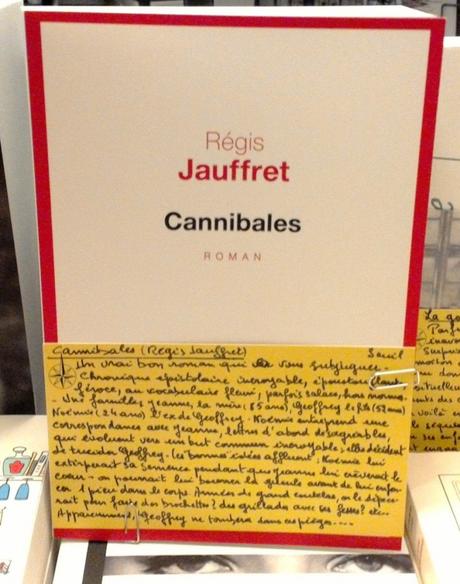 Régis
Jauffret
Cannibales
ROMAN
Cannibales (Régis Jauffret) Seuil
Un vrai bon roman qui va vous subliquer
Chronique épistolaire incroyable, époustouflante
féroce, au vocabulaire fleuri, parfois salace, hors normes.
- Une famille, Jeanne la mère (85 ans), Geoffrey le fils (52 ans)
Noémie (24 ans) l'ex de Geoffrey. Noémie entreprend une
correspondance avec Jeanne, lettres d'abord désagréables,
qui évoluent vers un but commun incroyable; elles décident
de trucider Geoffrey. les bonnes idées affluent; Noémie lui
extirperait sa semence pendant que Jeanne lui crèverait le
coeur - on pourrait lui bourrer la gueule avant de lui enfon-
cer 1 pieu dans le corps. Armées de grand couteau, on le dépece-
rait pour faire des brochettes? des grillades avec ses fesses? etc..
Apparemment, Geoffrey ne tombera dans ces pièges....
La